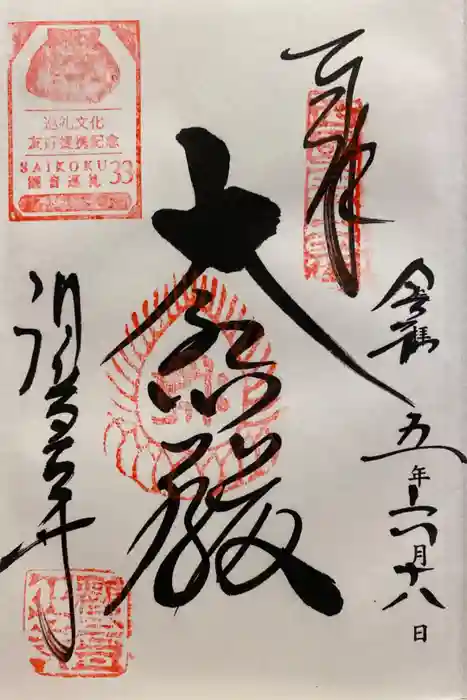 奉拝
令和
五年六月十八日
大悲殿
観音正寺
巡礼文化
友好提携記念
SAIKOKU 33
観音巡礼